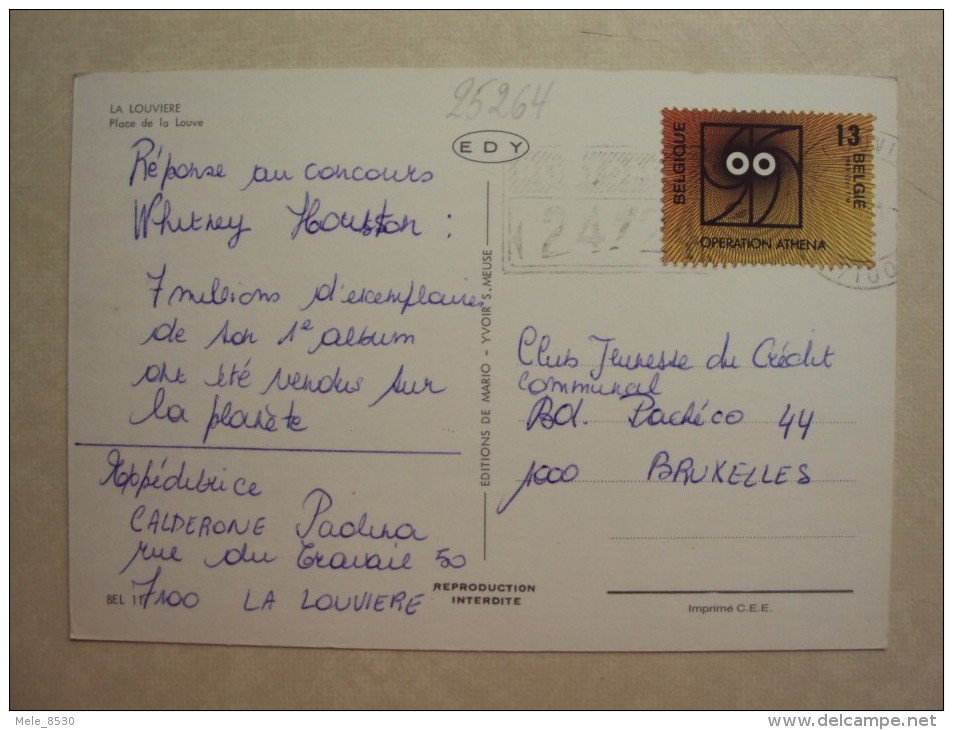 25264
LA LOUVIERE
Place de la Louve
EDY
Réponse au concours
Whitney Houston :
7 millions d'exemplaires
de son 1e album
ont été vendus sur
la planète
Exppéditrice
CALDERONE Paolina
rue du Travail 50
7100 LA LOUVIERE
BEL 11
EDITIONS DE MARIO - YVOIR S. MEUSE
REPRODUCTION
INTERDITE
BELGIQUE
13
BELGIE
OPERATION ATHENA
Club Jeunesse du Crédit
Communal
Bd. Pachéco 44
1000 BRUXELLES
Imprimé C.E.E.
Mele_8530
delcampe.net